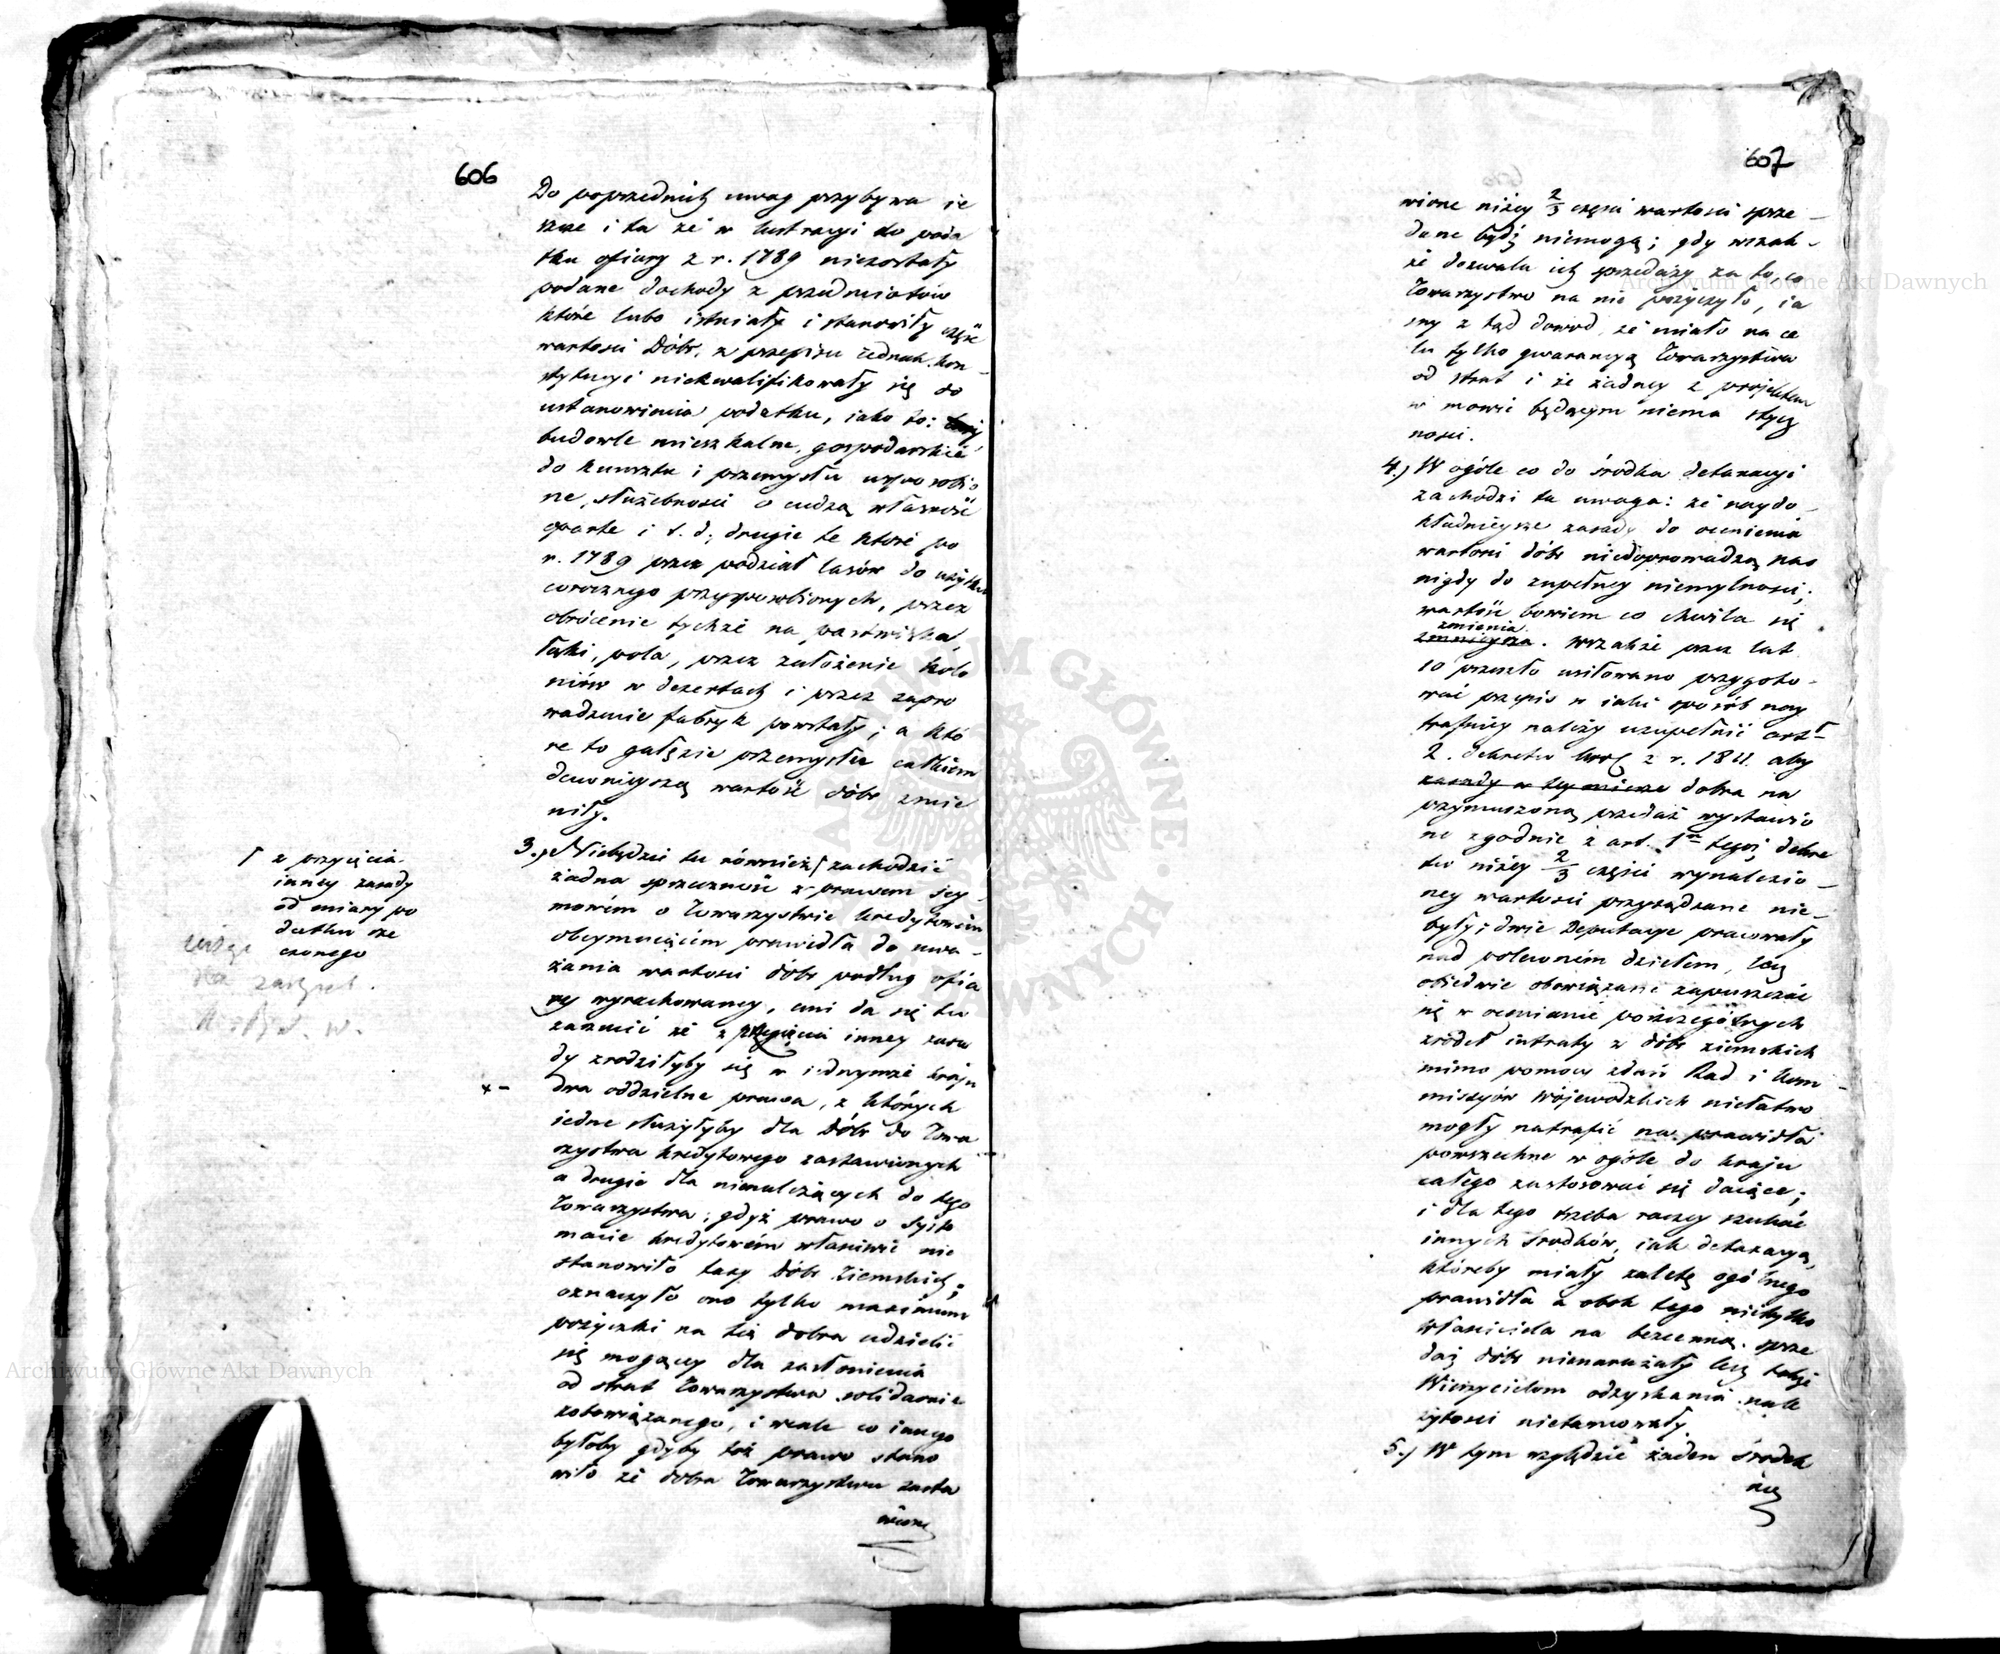 606
Do poprzednich uwag przybywa ie
szcze i ta że w lustracyi do poda
tku ofiary z r. 1789 niezostały
podane dochody z przedmiotów
które lubo istniały i stanowiły część
wartości Dóbr, z przepisu iednak kon-
stytucyi niekwalifikowały się do
ustanowienia podatku, iako to:
budowle mieszkalne, gospodarskie
do kunsztu i przemysłu usposobio
ne, służebności o cudzą własność
oparte i t. d; drugie te które po
r. 1789 przez podział lasów do użytku
corocznego przysposobionych, przez
obrócenie tychże na pastwiska,
łąki, pola, przez założenie kolo
niów w dezertach i przez zapro
wadzenie fabryk powstały; a któ
re to gałęzie przemysłu całkiem
dawnieyszą wartość dóbr zmie
niły.
3.) Niebędzie tu również / zachodzić
żadna sprzeczność z prawem sey-
mowém o Towarzystwie kredytowém
obeymuiącém prawidła do uwa-
żania wartości dóbr podług ofia
ry wyrachowaney, ani da się tu
zarzucić że z przyięcia inney zasa
dy zrodziłyby się w iednymże kraju
x - dwa oddzielne prawa, z których
iedne służyłyby dla Dóbr do Towa
rzystwa kredytowego zastawionych
a drugie dla nienależących do tego
Towarzystwa; gdyż prawo o Syste
macie kredytowém właściwie nie
stanowiło taxy Dóbr Ziemskich;
oznaczyło ono tylko maximum
pożyczki na też dobra udzielić
się mogącey dla zasłonienia
od strat Towarzystwa solidarnie
zobowiązanego, i wcale co innego
byłoby gdyby toż prawo stano
wiło że dobra Towarzystwu zasta
wione
/ z przyięcia
inney zasady
od miary po
datku rze
czonego
607
wione niżey 2/3 części wartości sprze-
dane bydź niemogą; gdy wszak-
że dozwala ich sprzedaży za to, co
Towarzystwo na nie pożyczyło, ia
sny z tąd dowod, że miało na ce
lu tylko gwarancyą Towarzystwa
od strat i że żadney z projektem
w mowie będącym niema stycz
ności.
4.) W ogóle co do środka detaxacyi
zachodzi ta uwaga: że naydo-
kładnieysze zasady do ocenienia
wartości dóbr niedoprowadzą nas
nigdy do zupełney niemylności;
wartość bowiem co chwila się
zmienia
zmnieysza. Wszakże przez lat
10 przeszło usiłowano przygoto-
wać przepis w iaki sposób nay
trafniey należy uzupełnić art
2. dekretu Król z r. 1811. aby
zasady w tey mierze dobra na
przymuszoną przedaż wystawio
ne zgodnie z art. 1m tegoż dekre
tu niżey 2/3 części wynalezio-
ney wartości przysądzane nie-
były; dwie Deputacye pracowały
nad poleconém dziełem, lecz
obiedwie obowiązane zapuszczać
się w ocenianie poszczególnych
źródeł intraty z dóbr ziemskich
mimo pomocy zdań Rad i Kom-
missyów Wojewódzkich niełatwo
mogły natrafić na prawidła
powszechne w ogóle do kraju
całego zastosować się daiące;
i dla tego trzeba raczey szukać
innych środków, iak detaxacya,
któreby miały zaletę ogólnego
prawidła a obok tego nietylko
właściciela na bezcenną sprze
daż dóbr nienarażały lecz także
Wierzycielom odzyskania nale
żytości nietamowały.
5.) W tym względzie żaden środek
nie